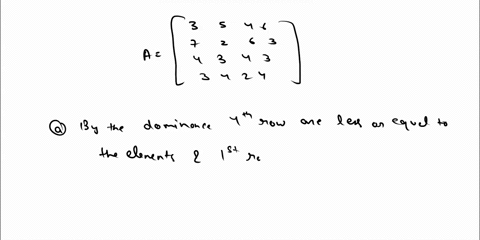 3 5 4 6
7 2 6 3
A = 4 3 4 3
3 4 2 4
(a) By the dominance 4th row are less or equal to
the elements & 1st ro